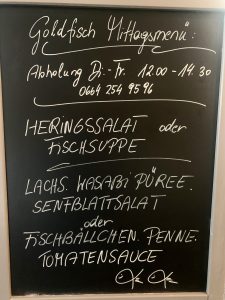 Goldfisch Mittagsmenü:
Abholung Di.-Fr. 12.00-14.30
0664 254 95 96
HERINGSSALAT oder
FISCHSUPPE
LACHS. WASABI PÜREE.
SENFBLATTSALAT
oder
FISCHBÄLLCHEN. PENNE.
TOMATENSAUCE